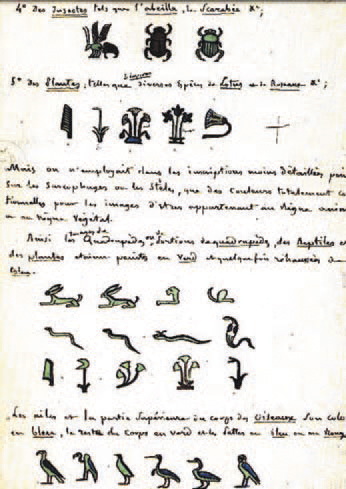 4° Des Insectes tels que l'abeille, le Scarabée &c;
5° des Plantes, telles que diverses espèces de Lotus et le Roseau &c;
Mais on n'employait dans les inscriptions moins détaillées
sur les Sarcophages ou les Stèles, que des Couleurs totalement
pour les images d'êtres appartenant au règne
ou au règne végétal.
Ainsi les Quadrupèdes, ou portions de quadrupèdes, des Reptiles et
des plantes étaient peints en Verd et quelquefois rehaussés de
bleu.
Les ailes et la partie Supérieure du corps des Oiseaux Son
en bleu, le reste du Corps en verd et les pattes en bleu ou en rouge